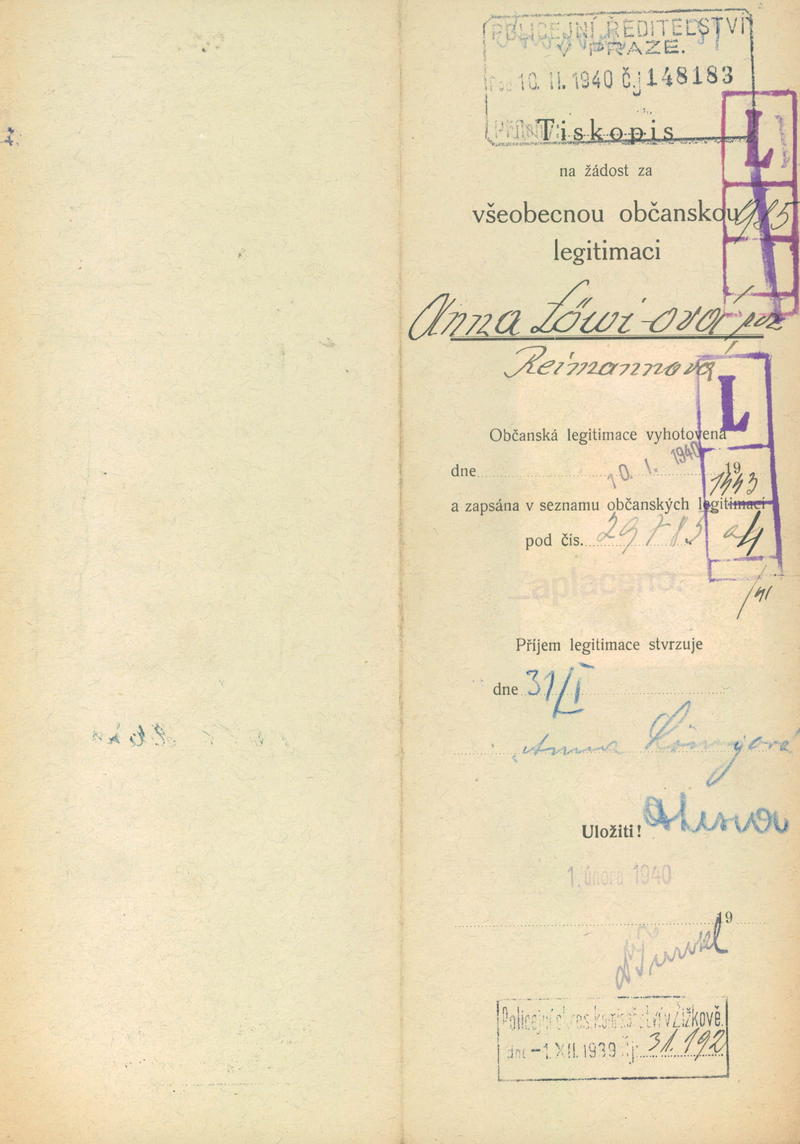 POLICEJNÍ ŘEDITELSTVÍ
V PRAZE.
10. II. 1940 čj 148183
Tiskopis
na žádost za
všeobecnou občanskou
legitimaci
L
985
Anna Löwi-ová
Reimannová
L
Občanská legitimace vyhotovena
dne 10. I. 1940 19
1443
a zapsána v seznamu občanských legitimací
pod čís. 29785
a4
Zaplaceno.
Příjem legitimace stvrzuje
dne 31/I
Anna
Uložiti!
1. února 1940
19
Policejní okres. komisařství v Žižkově.
dne -1. XII. 1939 čj: 31.192